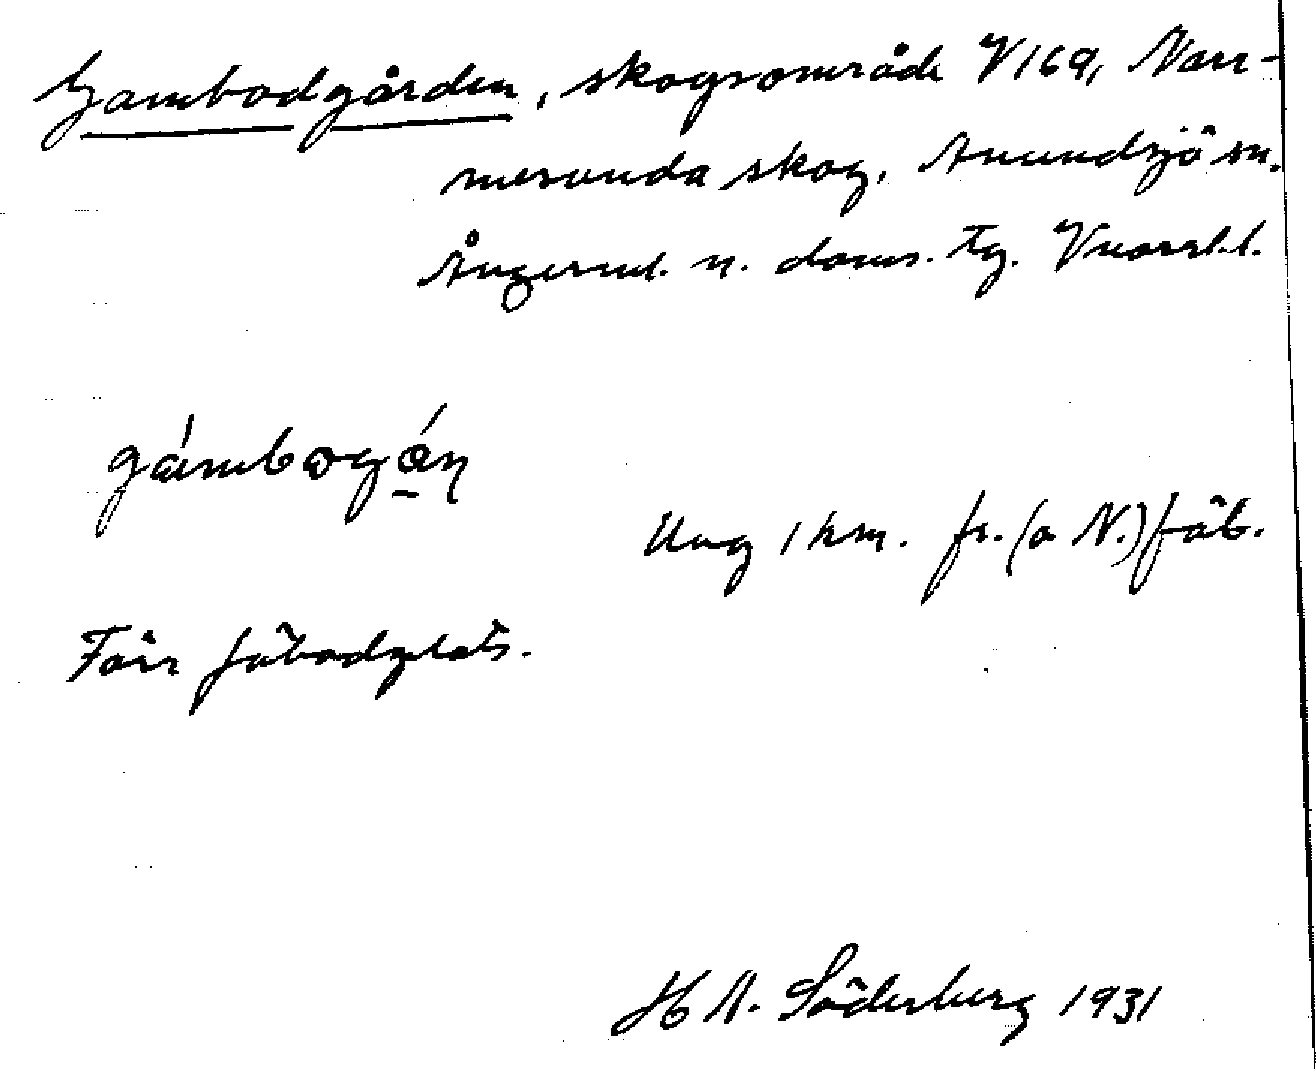 Gambodgården, skogsområde V 169, Norr-
mesunda skog, Anundsjö sn.
Ångerml. n. doms. tg. Vnorrl. l.
gámbogán
Ung 1 km. fr. (o N.) fäb.
Förr fäbodplats.
H A. Söderberg 1931